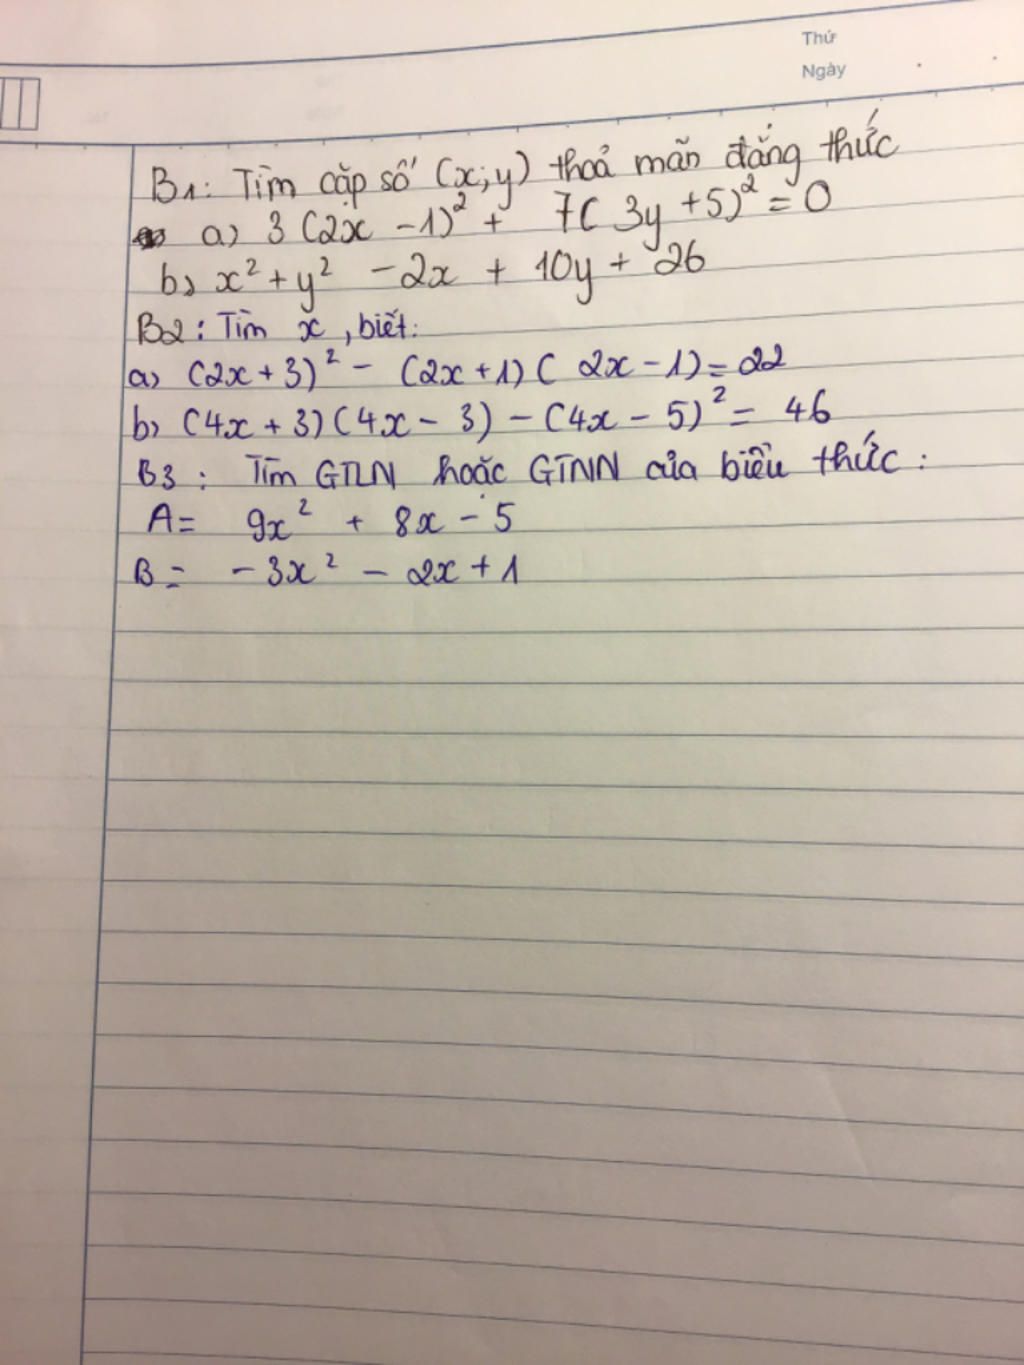 Thứ
Ngày
B1: Tìm cặp số (x;y) thoả mãn đẳng thức
a) 3 (2x - 1)² + 7( 3y + 5)² = 0
b) x² + y² - 2x + 10y + 26
B2: Tìm x, biết:
a) (2x + 3)² - (2x + 1) ( 2x - 1) = 22
b) (4x + 3) (4x - 3) - (4x - 5)² = 46
B3: Tìm GTLN hoặc GTNN của biểu thức :
A = 9x² + 8x - 5
B = - 3x² - 2x + 1